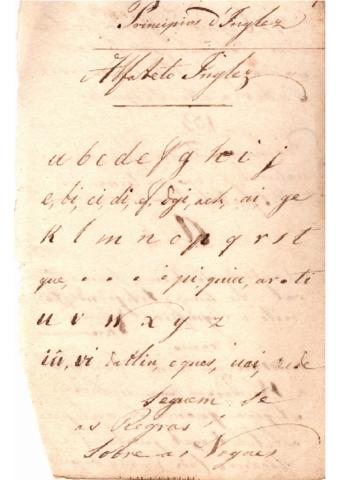 Principios d'Inglez
Alfabeto Inglez
a b c d e f g h i j
e, bi, ci, di, ef, dgi, ach, ai, ge
k l m n o p q r s t
que, • • • • pi, quiu, ar • ti
u v w x y z
iú, vi dabliu, eques, uai, zede
Seguem se
as Regras
Sobre as Vogaes